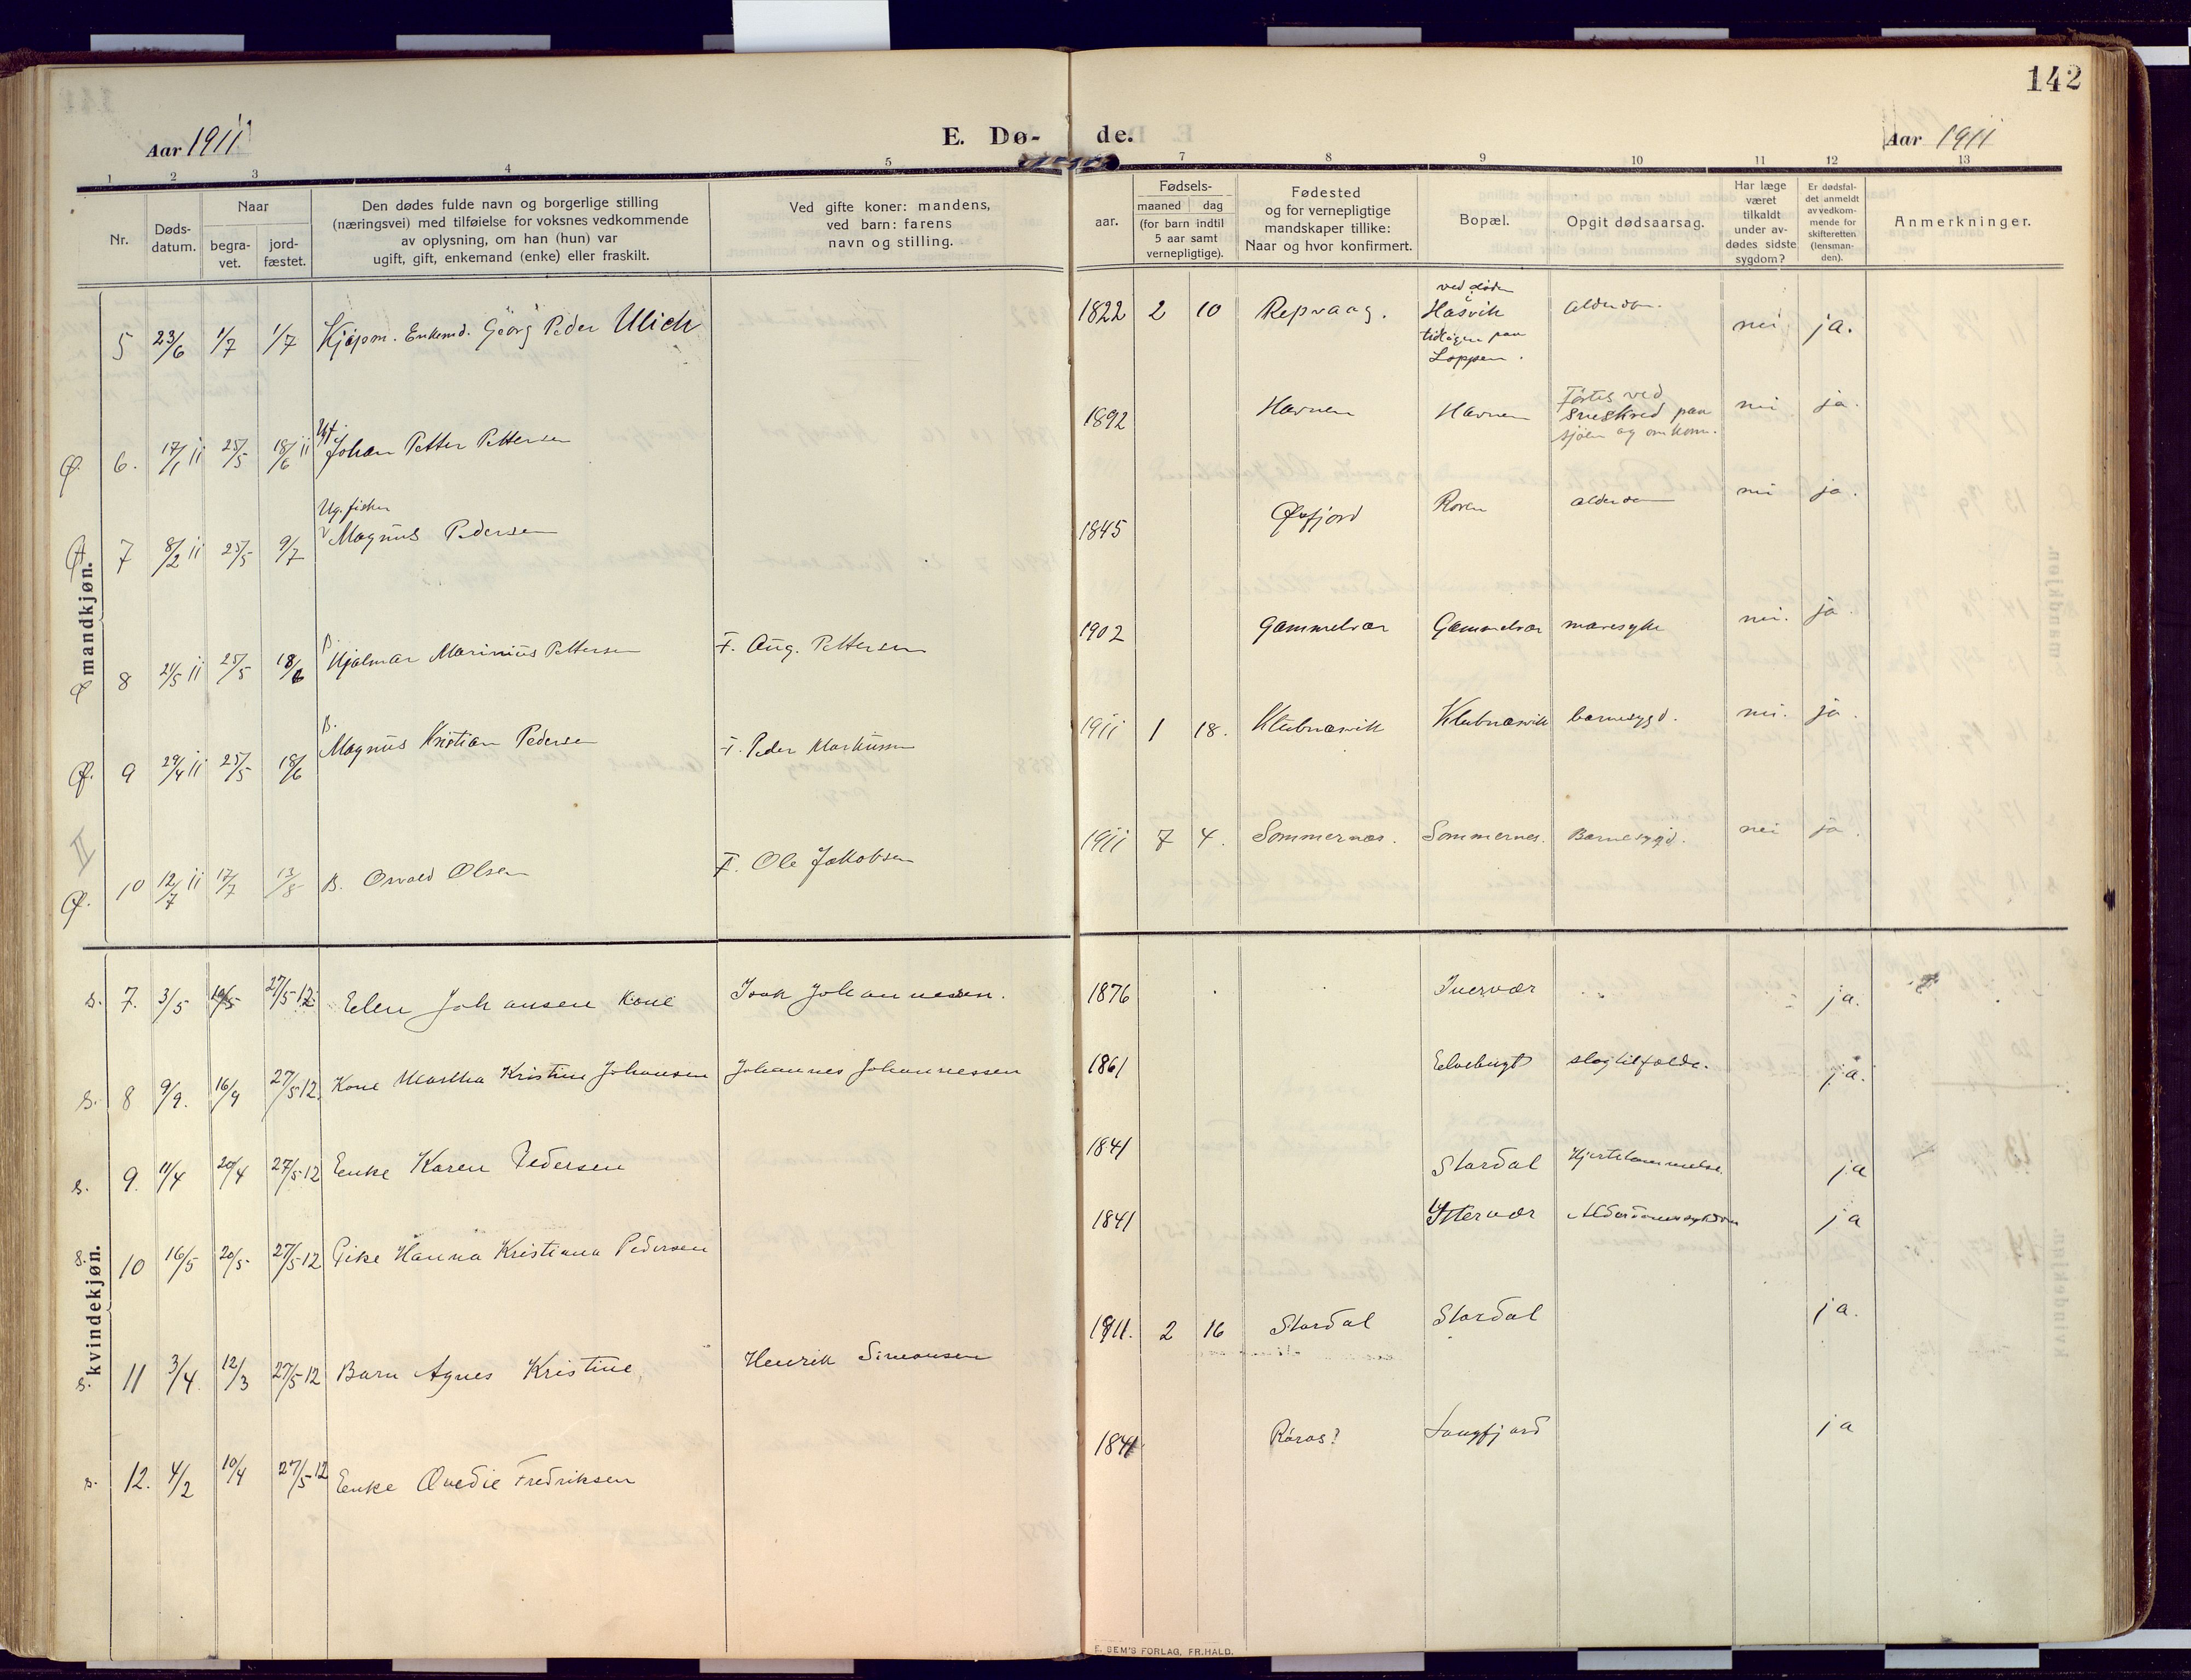 142
Aar 1911
E. Dø- de.
Aar 1911
1 2 3 4 5 7 8 9 10 11 12 13
Nr.
Døds-
datum.
Naar
begra-
vet.
jord-
fæstet.
Den dødes fulde navn og borgerlige stilling
(næringsvei) med tilføielse for voksnes vedkommende
av oplysning, om han (hun) var
ugift, gift, enkemand (enke) eller fraskilt.
Ved gifte koner: mandens,
ved barn: farens
navn og stilling.
Fødsels-
aar.
maaned dag
(for barn indtil
5 aar samt
vernepligtige).
Fødested
og for vernepligtige
mandskaper tillike:
Naar og hvor konfirmert.
Bopæl.
Opgit dødsaarsag.
Har læge
været
tilkaldt
under av-
dødes sidste
sygdom?
Er dødsfal-
det anmeldt
av vedkom-
mende for
skifteretten
(lensman-
den).
Anmerkninger.
mandkjøn.
5 23/6 1/7 1/7 Kjøpm. Enkemd. Georg Peder Ulich 1822 2 10 Repvaag. ved døden
Hasvik
tidligere paa
Loppen. alderdom. nei ja.
Ø. 6. 17/1 11 25/5 18/6 11 Ugt.
Johan Petter Pettersen 1892 Havnen Havnen Førtes ved
Sneskred paa
sjøen og omkom. nei ja.
Ø 7 8/2 11 25/5 9/7 Ug. fisker
Magnus Pedersen 1845 Øxfjord Roven alderdom nei ja.
Ø 8 21/5 11 25/5 18/6 Hjalmar Marinius Pettersen F. Aug. Pettersen 1902 Gammelvær Gammelvær mavesyke nei. ja
Ø. 9 29/4 11 25/5 18/6 B.
Magnus Kristian Pedersen F. Peder Markussen 1911 1 18. Klubnasvik Klubnasvik barnesygd. nei. ja.
II
Ø. 10 12/7 11 17/7 13/8 B. Osvald Olsen F. Ole Jakobsen 1911 7 4. Sommernæs. Sommernes. Barnesygd. nei ja.
kvindekjøn.
s. 7. 3/5 10/5 27/5-12 Elen Johansen Kone Isak Johannessen. 1876 Indervær ja.
s. 8 9/9. 16/9 27/5-12. Kone Martha Kristine Johansen Johannes Johannessen 1861 Elvebugt slagtilfælde. ja.
s. 9. 11/4 20/4 27/5-12 Enke Karen Pedersen 1841 Stordal Hjertelammelse. ja
s. 10 16/5 20/5 27/5-12 Pike Hanna Kristiana Pedersen 1841 Yttervær Alderdomssykdom ja
s. 11 3/4. 12/3 27/5-12 Barn Agnes Kristine, Henrik Simonsen 1911. 2 16 Stordal Stordal ja.
s. 12. 4/2 10/4 27/5-12 Enke Ovedie Fredriksen 1841 Røros? Langfjord ja
E. SEM'S FORLAG, FR.HALD.